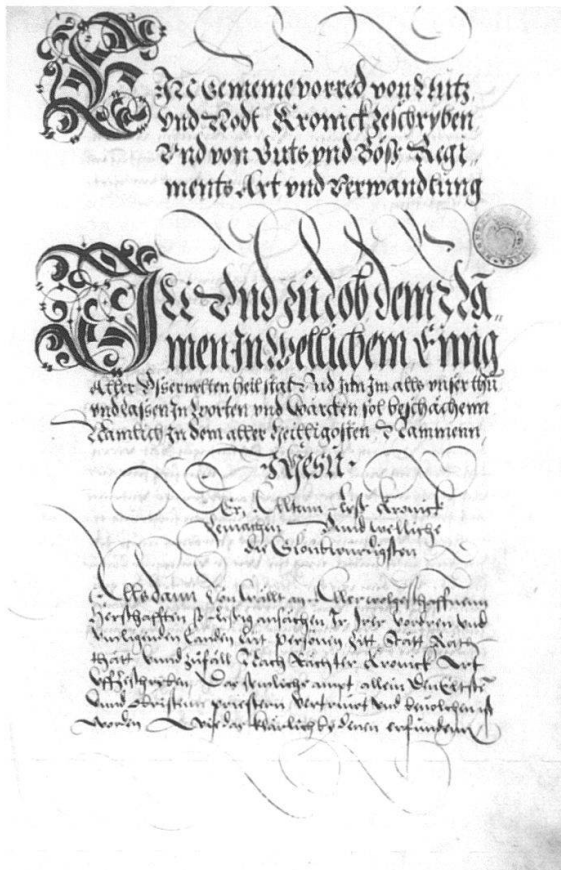 EIN Gemeine vorred von Nutz
vnd Nodt Kronick zeschryben
Vnd von Guts vnd Böß Regi„
ments Art vnd Verwandlung
IN Vnd zü Lob dem Na„
men In Wellichem Einig
Aller Vsserwelten Heil stat Vnd Inn Im alle vnser thů
vnd lassen In worten vnd wärcken sol beschächenn
Namlich In dem aller Heilligosten Nammenn
Jhesu
Kronick
gemachen Vnnd welliche
die Gloubwürdigsten
Alls dann von wällt an Aller wolgeschaffnenn
Herschafften Ir Irer vordren vnd
vmligenden Landen Lüt personen Zitt Statt Rath
thätt vnnd züfäll Nach Rächter Kronick Art
vffgeschryben, Das semliche ampt allein den Eltsten
vnnd Obristenn priestern vertruwt vnd beuolchen ist
worden Wie das klärlich by denen erfundenn